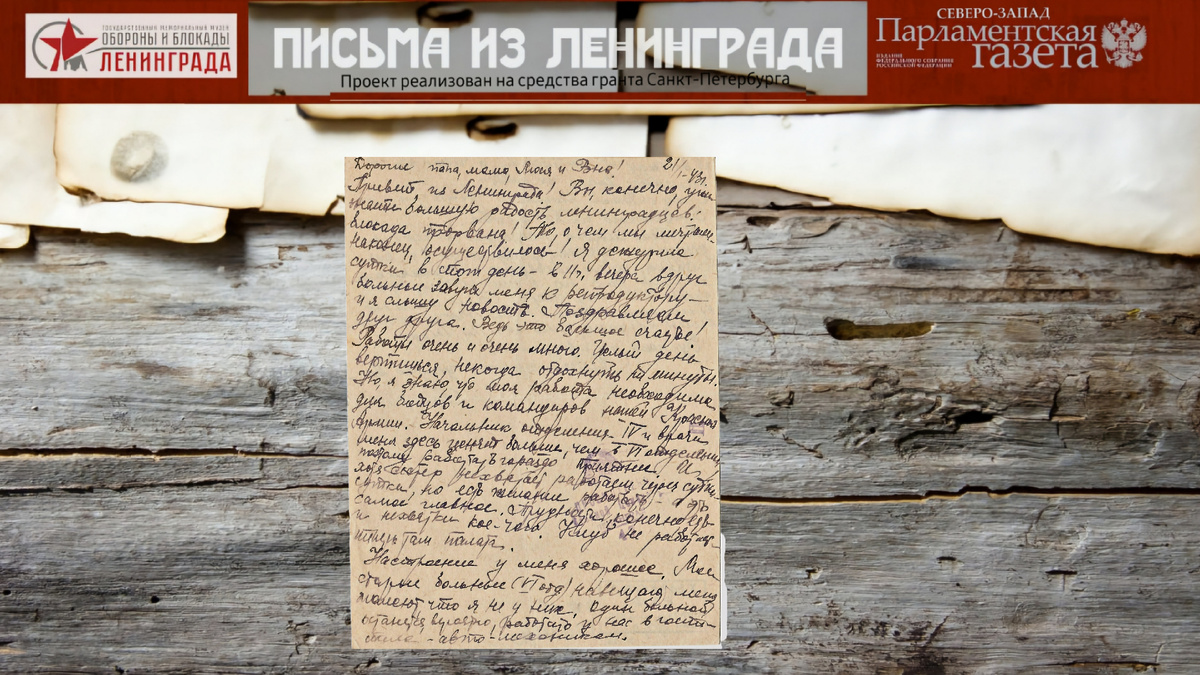 ГОСУДАРСТВЕННЫЙ МЕМОРИАЛЬНЫЙ МУЗЕЙ
ОБОРОНЫ И БЛОКАДЫ
ЛЕНИНГРАДА
ПИСЬМА ИЗ ЛЕНИНГРАДА
Проект реализован на средства гранта Санкт-Петербурга
СЕВЕРО-ЗАПАД
Парламентская
газета
ИЗДАНИЕ
ФЕДЕРАЛЬНОГО СОБРАНИЯ
РОССИЙСКОЙ ФЕДЕРАЦИИ
Дорогие папа, мама, и 21/I-43г.
Привет из Ленинграда! Вы, конечно, узна
большую радость ленинградцев:
блокада прорвана! То, о чем мы мечтали,
наконец, осуществилось! Я дежурила
сутки в этот день - в 11ч. вечера вдруг
больные зовут меня к репродуктору -
и я слышу новость. Поздравляем
друг друга. Ведь это большое счастье!
Работы очень и очень много. Целый день
вертишься, некогда отдохнуть ни минуты.
Но, я знаю что моя работа необходима
для бойцов и командиров нашей Красной
Армии. Начальник отделения IV и врачи
меня здесь ценят больше, чем в VI отделении,
поэтому работать гораздо приятнее. И
хотя сестер нехватает работаем через сутки -
сутки, но есть желание работать - это
самое главное. Трудности, конечно есть
и нехватки кое-чего. Клуб не работает
теперь там палата.
Настроение у меня хорошее. Мои
старые больные (VI отд) навещают меня
жалеют что я не у них. Один больной
останется работать у нас в госпи-
тале - авто-механиком.